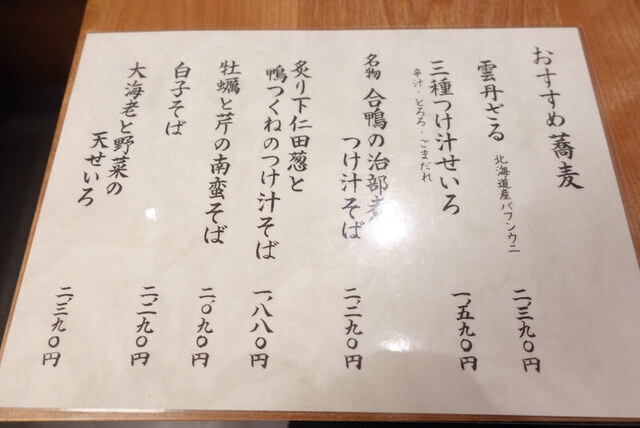 おすすめ蕎麦
雲丹ざる 北海道産バフンウニ 二、三九〇円
三種つけ汁せいろ 一、五九〇円
辛汁・とろろ・ごまだれ
名物 合鴨の治部煮
つけ汁そば 二、二九〇円
炙り下仁田葱と
鴨つくねのつけ汁そば 一、八八〇円
牡蠣と芹の南蛮そば 二、〇九〇円
白子そば 二、二九〇円
大海老と野菜の
天せいろ 二、三九〇円